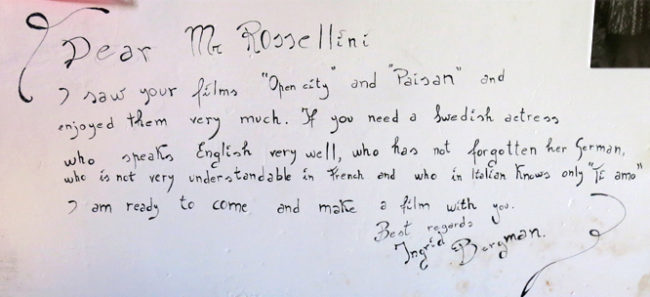 Dear Mr Rossellini
I saw your films "Open city" and "Paisan" and
enjoyed them very much. If you need a Swedish actress
who speaks English very well, who has not forgotten her German,
who is not very understandable in French and who in Italian knows only "TE amo"
I am ready to come and make a film with you.
Best regards
Ingrid Bergman.